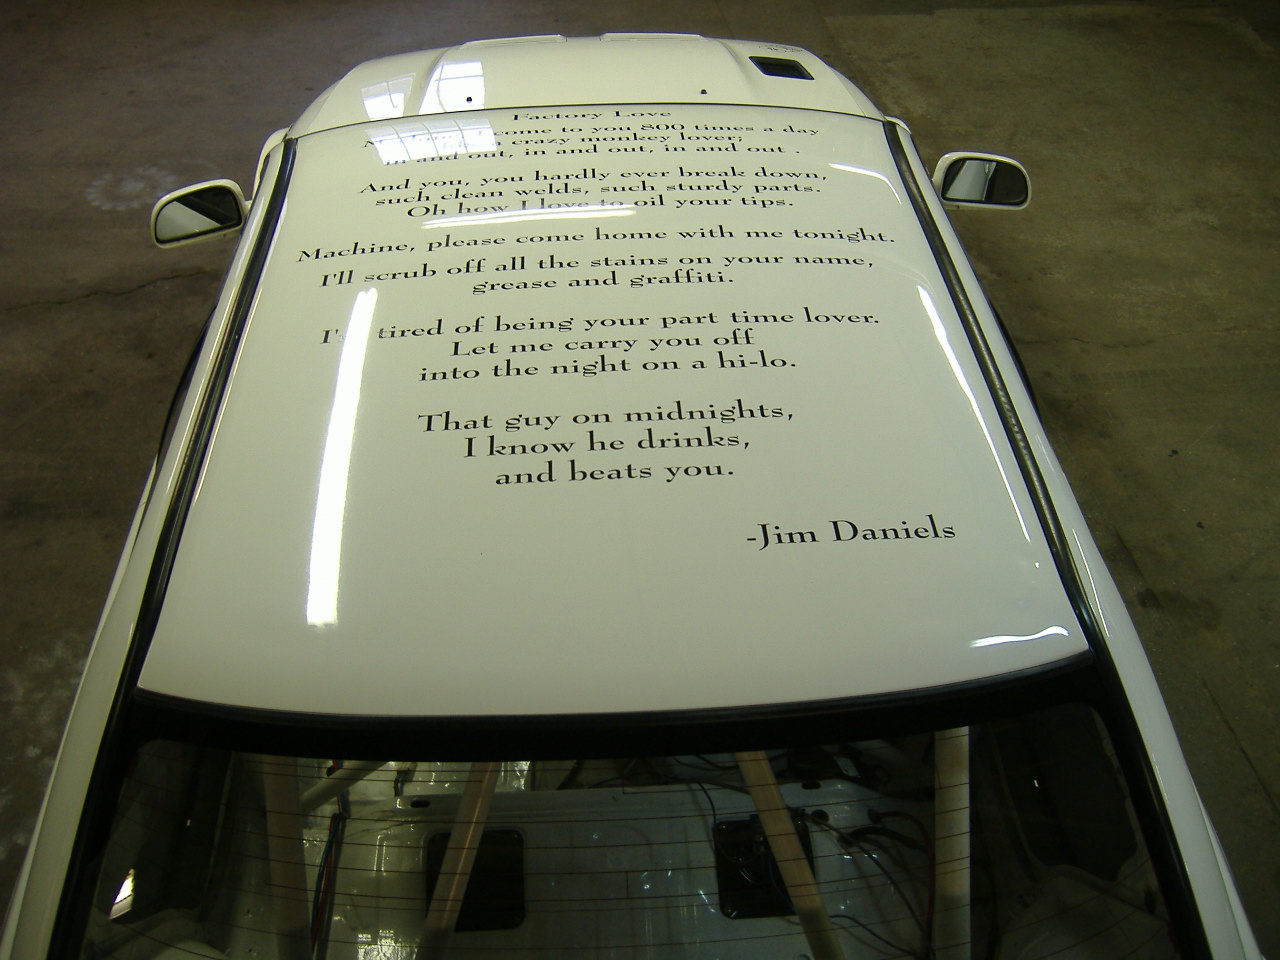 Factory Love
come to you 800 times a day
crazy monkey lover;
in and out, in and out, in and out .
And you, you hardly ever break down,
such clean welds, such sturdy parts.
Oh how I love to oil your tips.
Machine, please come home with me tonight.
I'll scrub off all the stains on your name,
grease and graffiti.
I'm tired of being your part time lover.
Let me carry you off
into the night on a hi-lo.
That guy on midnights,
I know he drinks,
and beats you.
-Jim Daniels